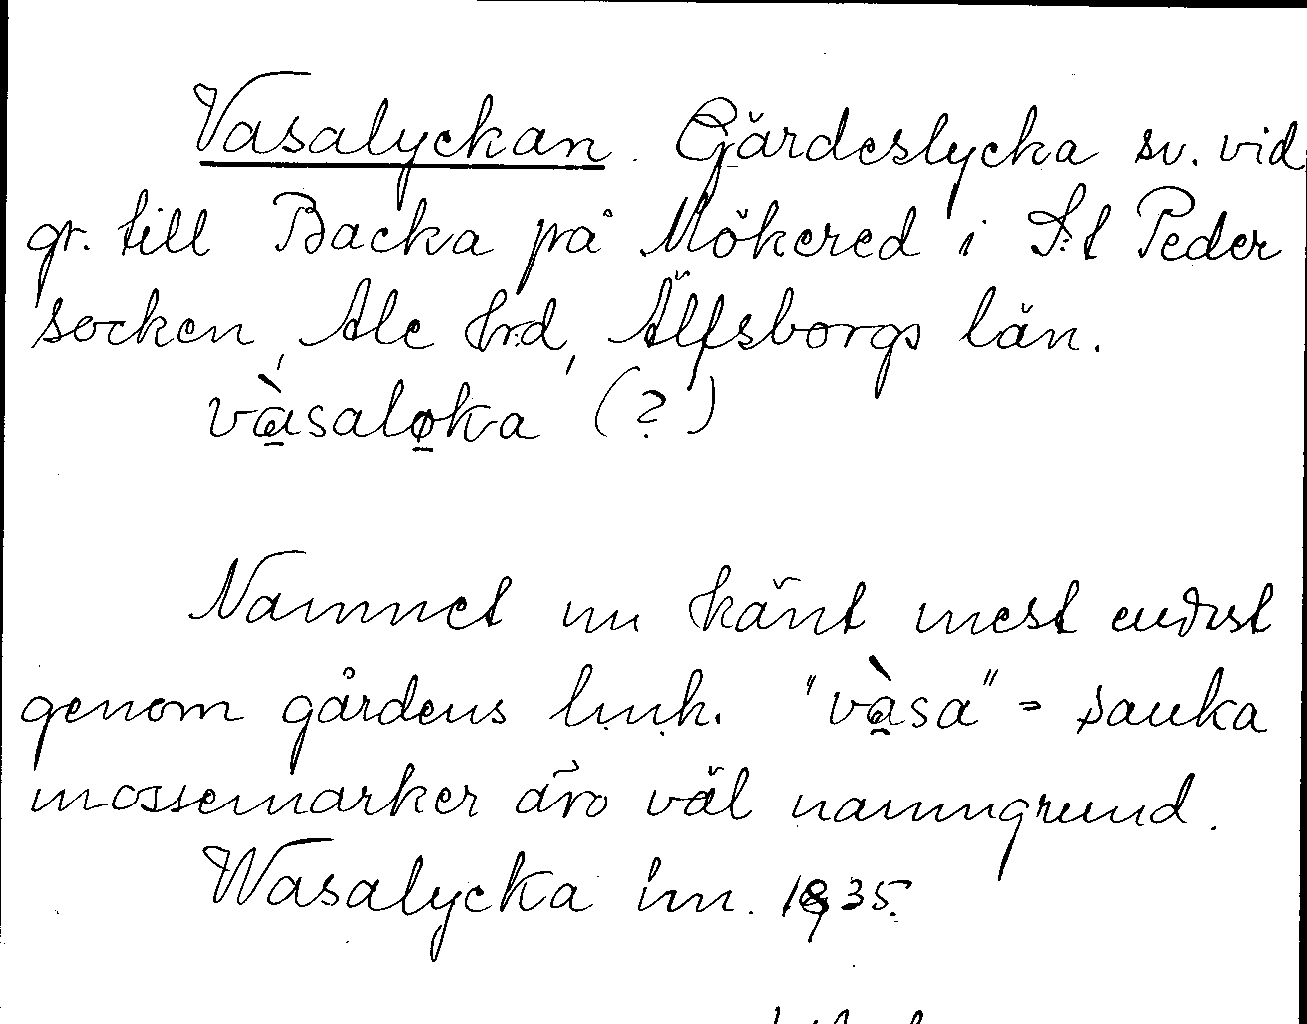 Vasalyckan. Gärdeslycka sv. vid
gr. till Backa på Mökered i S:t Peder
socken, Ale hrd, Älfsborgs län.
vàsaløka (?)
Namnet nu känt mest endast
genom gårdens lmk. "vàsa" = sanka
mossemarker äro väl namngrund.
Wasalycka lm. 1835.